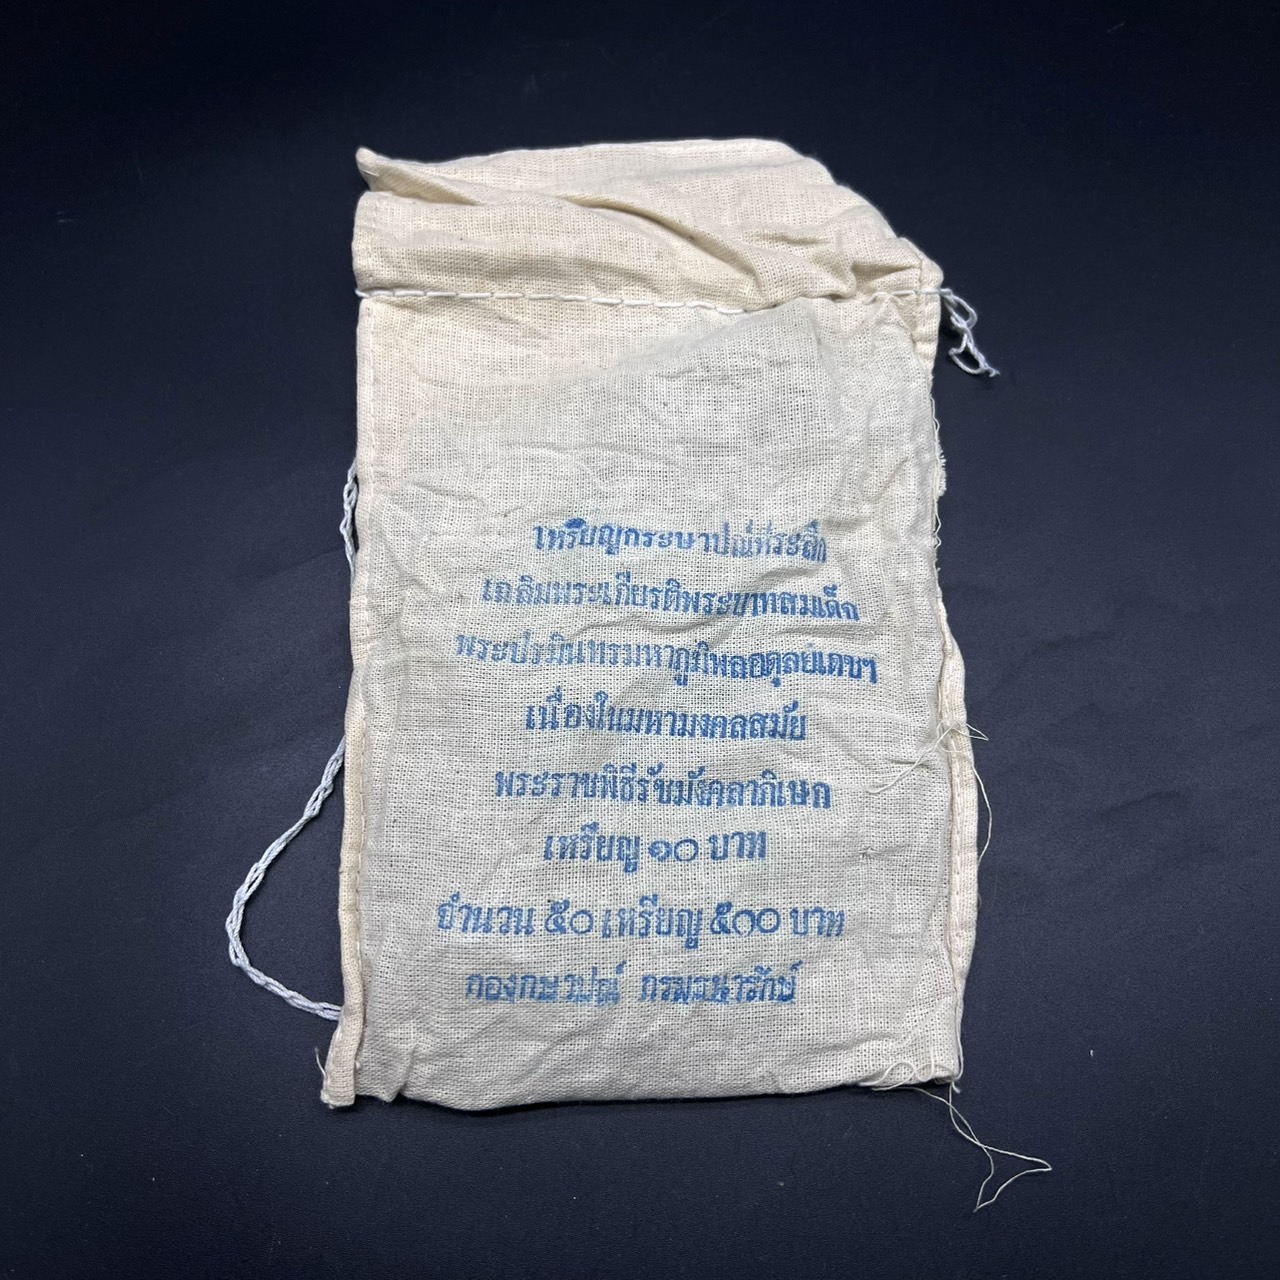 เหรียญกระษาปณ์ที่ระลึก
เฉลิมพระเกียรติพระบาทสมเด็จ
พระปรมินทรมหาภูมิพลอดุลยเดชฯ
เนื่องในมหามงคลสมัย
พระราชพิธีรัชมังคลาภิเษก
เหรียญ ๑๐ บาท
จำนวน ๕๐ เหรียญ ๕๐๐ บาท
กองกษาปณ์ กรมธนารักษ์